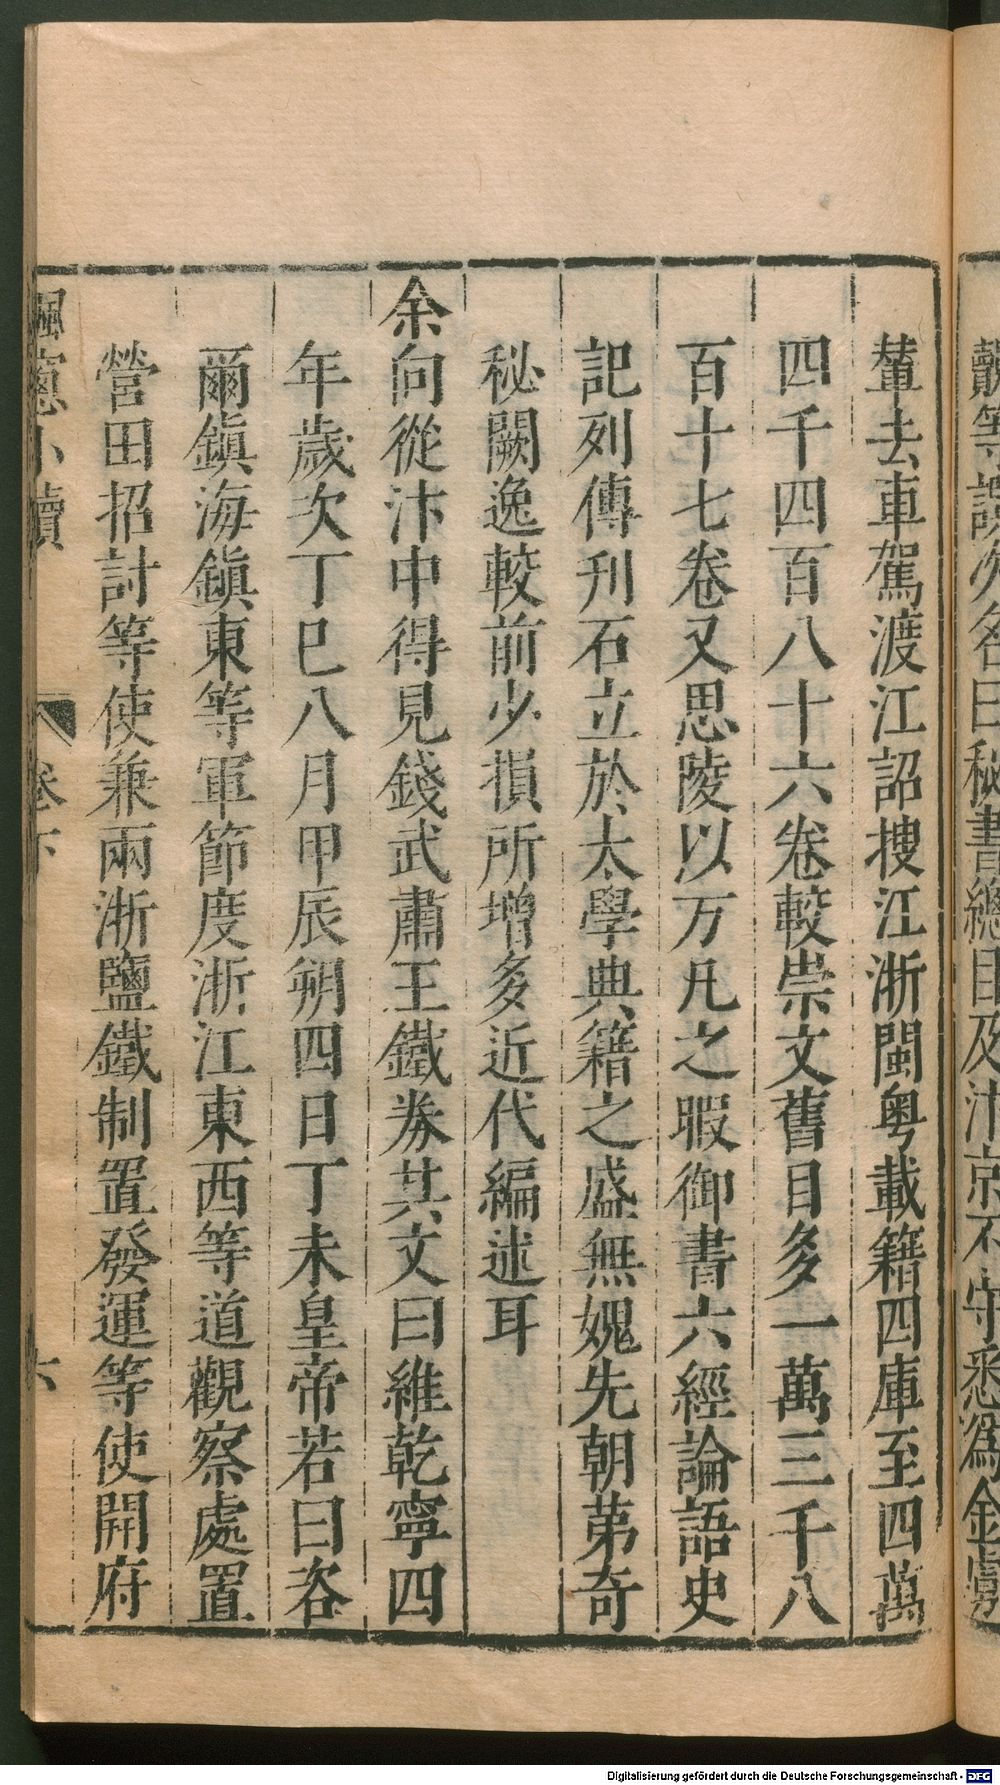 轂等誤次名曰秘書總目及汴京不守悉爲金虜
輦去車駕渡江詔搜江浙閩粤載籍四庫至四萬
四千四百八十六卷較崇文舊目多一萬三千八
百十七卷又思陵以万凡之暇御書六經論語史
記列傳刋石立於太學典籍之盛無媿先朝苐奇
秘闕逸較前少損所增多近代編述耳
余向從汴中得見錢武肅王鐵券其文曰維乾寧四
年歲次丁巳八月甲辰朔四日丁未皇帝若曰咨
爾鎮海鎮東等軍節度浙江東西等道觀察處置
營田招討等使兼兩浙鹽鐵制置發運等使開府
楓窻小牘 卷下 六
Digitalisierung gefördert durch die Deutsche Forschungsgemeinschaft - DFG